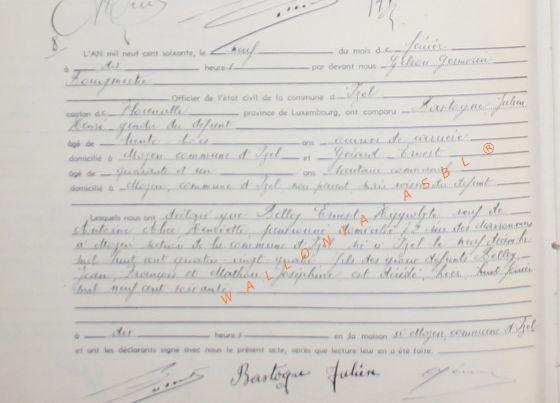 8
L'AN mil neuf cent soixante, le neuf du mois de février
à dix heures par devant nous Gilson Germain
Bourgmestre
Officier de l'état civil de la commune d'Izel
canton de Florenville province de Luxembourg, ont comparu Bastogne Julien
Henri gendre du défunt
âgé de trente trois ans ouvrier de carrière
domicilié à Moyen commune d'Izel et Gérard Ernest
âgé de quarante et un ans communal
domicilié à Moyen, commune d'Izel non parent mais voisin du défunt
Lesquels nous ont déclaré que Belley Ernest Hyppolyte veuf de
Henriette, pensionné domicilié 72 rue des
à Moyen section de la commune d'Izel né à Izel le neuf décembre
mil huit cent quatre vingt quatre fils des époux défunts Belley
Jean François et Mathieu Joséphine est décédé, hier, huit février
mil neuf cent soixante
à dix heures en sa maison à Moyen, commune d'Izel
et ont les déclarants signé avec nous le présent acte, après que lecture leur en a été faite.
Bastogne Julien
WALLONIA ASBL ®